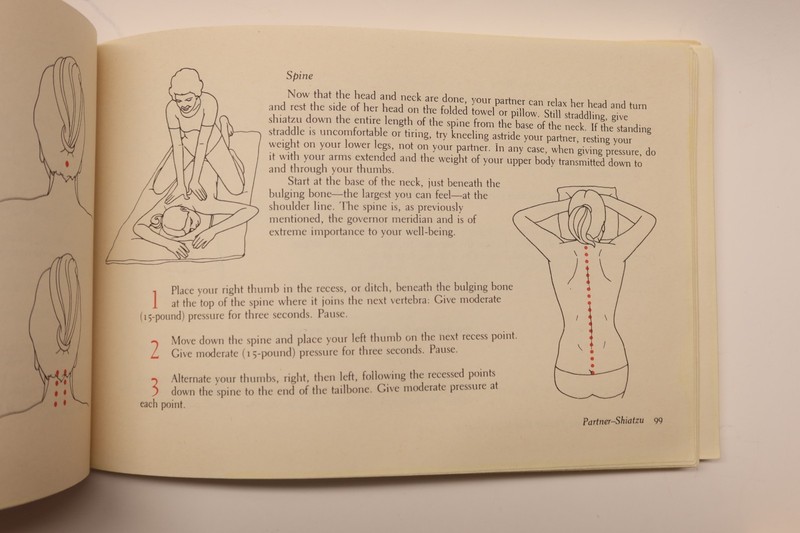 Spine
Now that the head and neck are done, your partner can relax her head and turn
and rest the side of her head on the folded towel or pillow. Still straddling, give
shiatzu down the entire length of the spine from the base of the neck. If the standing
straddle is uncomfortable or tiring, try kneeling astride your partner, resting your
weight on your lower legs, not on your partner. In any case, when giving pressure, do
it with your arms extended and the weight of your upper body transmitted down to
and through your thumbs.
Start at the base of the neck, just beneath the
bulging bone—the largest you can feel—at the
shoulder line. The spine is, as previously
mentioned, the governor meridian and is of
extreme importance to your well-being.
1 Place your right thumb in the recess, or ditch, beneath the bulging bone
at the top of the spine where it joins the next vertebra. Give moderate
(15-pound) pressure for three seconds. Pause.
2 Move down the spine and place your left thumb on the next recess point.
Give moderate (15-pound) pressure for three seconds. Pause.
3 Alternate your thumbs, right, then left, following the recessed points
down the spine to the end of the tailbone. Give moderate pressure at
each point.
Partner–Shiatzu 99